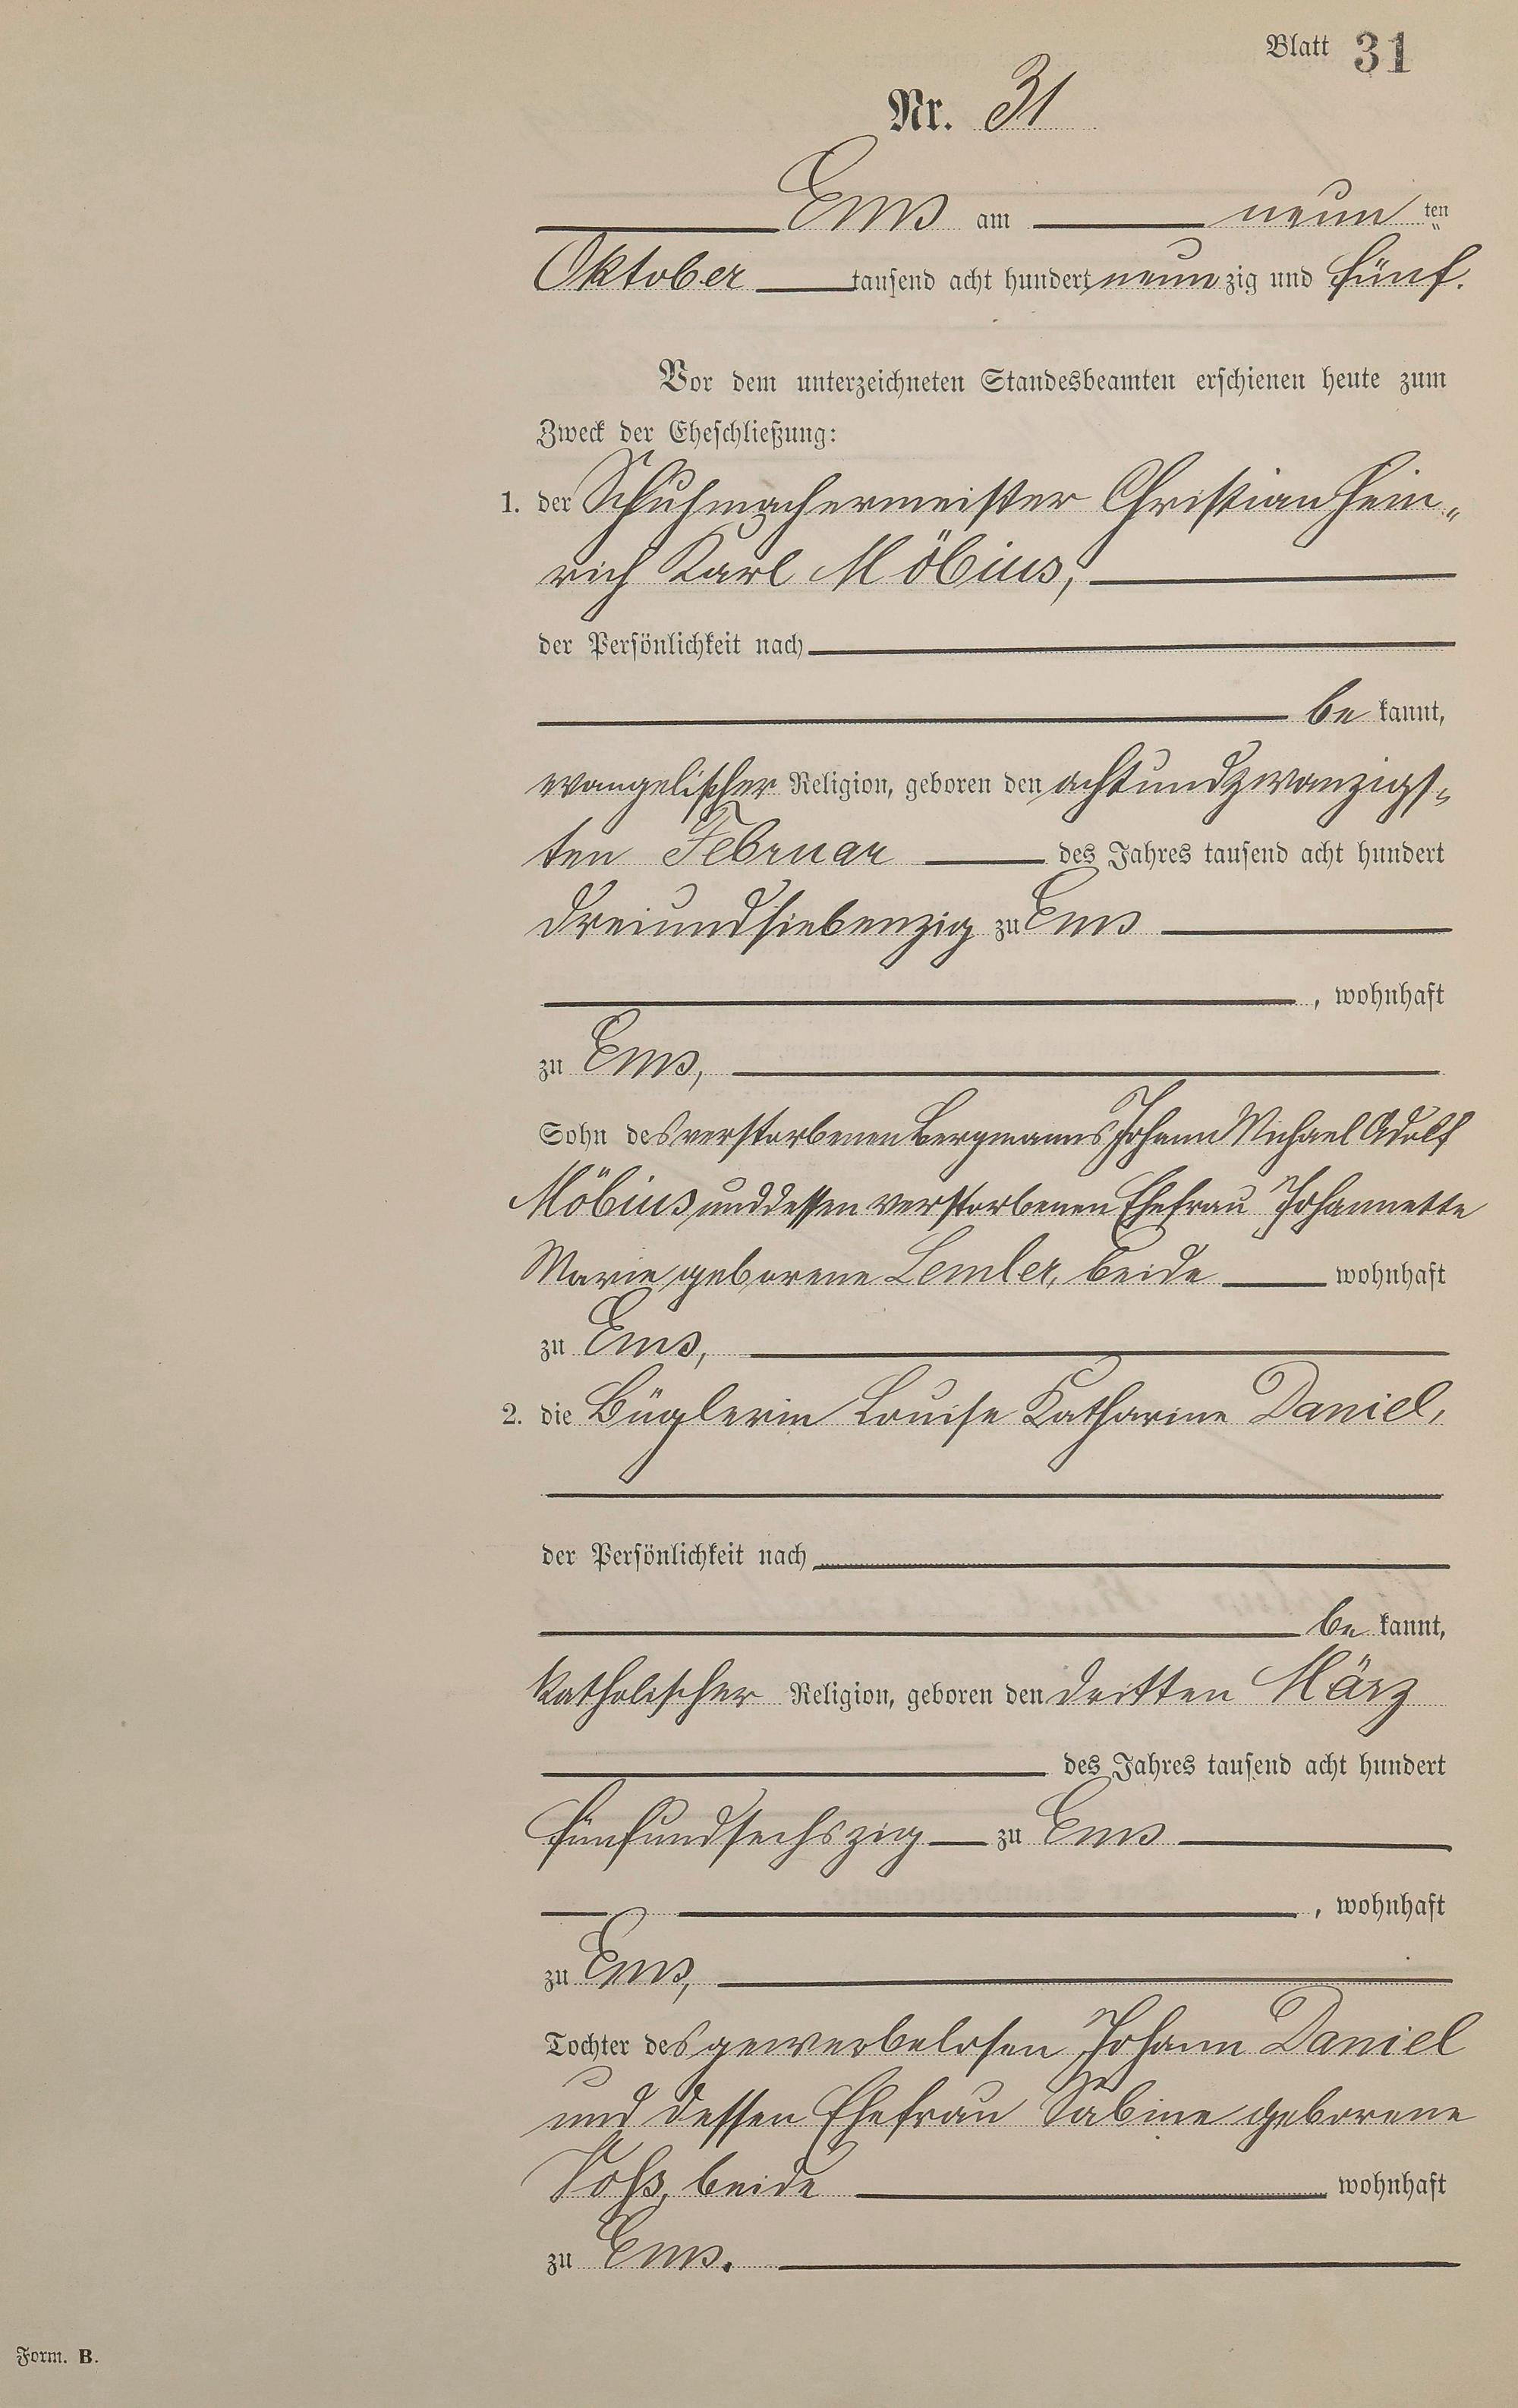 Blatt 31
Nr. 31
Ems am neunten
Oktober tausend acht hundert neunzig und fünf.
Vor dem unterzeichneten Standesbeamten erschienen heute zum
Zweck der Eheschließung:
1. der Schuhmachermeister Christian Hein„
rich Karl Möbius,
der Persönlichkeit nach
be kannt,
evangelischer Religion, geboren den achtundzwanzigs„
ten Februar des Jahres tausend acht hundert
dreiundsiebenzig zu Ems
, wohnhaft
zu Ems,
Sohn des verstorbenen Bergmanns Johann Michael Adolf
Möbius und dessen verstorbenen Ehefrau Johannette
Marie geborene Lemler, beide wohnhaft
zu Ems,
2. die Büglerin Louise Katharine Daniel,
der Persönlichkeit nach
be kannt,
katholischer Religion, geboren den dritten März
des Jahres tausend acht hundert
fünfundsechszig zu Ems
, wohnhaft
zu Ems,
Tochter des gewerbelosen Johann Daniel
und dessen Ehefrau Sabine geborene
beide wohnhaft
zu Ems.
Form. B.